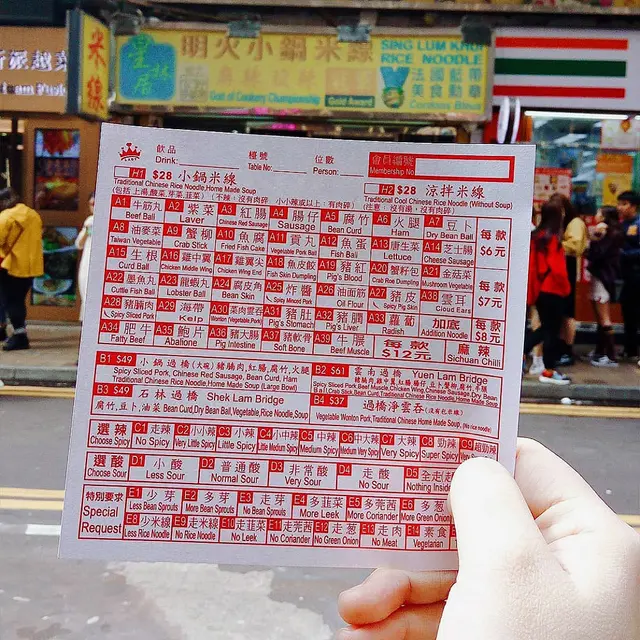 明火小鍋米線
SING LUM KHUI
RICE NOODLE
法國藍帶
美食勳章
Cordons Bleus
Gold of Cookery Championship
Gold Award
米線
飲品
Drink:
檯號
Table No.:
位數
Person:
會員編號
Membership No
H1 $28 小鍋米線
Traditional Chinese Rice Noodle,Home Made Soup
(包括上湯,酸菜,芽菜,韮菜) (不辣,沒有肉碎)
H2 $28 涼拌米線
Traditional Cool Chinese Rice Noodle (Without Soup)
A1 牛筋丸 Beef Ball
A2 紫菜 Laver
A3 紅腸 Chinese Red Sausage
A4 腸仔 Sausage
A5 腐竹 Bean Curd
A6 火腿 Ham
A7 豆卜 Dry Bean Ball
A8 油麥菜 Taiwan Vegetable
A9 蟹柳 Crab Stick
A10 魚腐 Fried Fish Cake
A11 貢丸 Vegetable Pork Ball
A12 魚蛋 Fish Ball
A13 唐生菜 Lettuce
A14 芝士腸 Cheese Sausage
每款 $6元
A15 生根 Curd Ball
A16 雞中翼 Chicken Middle Wing
A17 雞翼尖 Chicken Wing End
A18 魚皮餃 Fish Skin Dumpling
A19 豬紅 Pig's Blood
A20 蟹籽包 Crab Roe Dumpling
A21 金菇菜 Mushroom Vegetable
A22 墨魚丸 Cuttle Fish Ball
A23 龍蝦丸 Lobster Ball
A24 腐皮角 Bean Skin
A25 炸醬 Spicy Minced Pork
A26 油面筋 Oil Flour
A27 豬皮 Spicy Pig Skin
A38 雲耳 Cloud Ears
每款 $7元
A28 豬腩肉 Spicy Sliced Pork
A29 海帶 Kelp
A30 菜肉雲吞 Wonton (Vegetable Pork)
A31 豬肚 Pig's Stomach
A32 豬膶 Pig's Liver
A33 蘿蔔 Radish
加底 Addition Noodle
每款 $8元
A34 肥牛 Fatty Beef
A35 鮑片 Abalone
A36 豬大腸 Pig Intestine
A37 豬軟骨 Soft Bone
A39 牛𦟌 Beef Muscle
每款 $12元
麻辣 Sichuan Chilli
B1 $49 小鍋過橋(大碗) 豬腩肉,紅腸,腐竹,火腿
Spicy Sliced Pork, Chinese Red Sausage, Bean Curd, Ham
Traditional Chinese Rice Noodle,Home Made Soup (Large Bowl)
B2 $61 雲南過橋 Yuen Lam Bridge
B3 $49 石林過橋 Shek Lam Bridge
腐竹,豆卜,油菜 Bean Curd,Dry Bean Ball,Vegetable,Rice Noodle,Soup
B4 $37 過橋淨雲吞(沒有包米線)
Vegetable Wonton Pork,Traditional Chinese Home Made Soup,(No rice noodle)
選辣 Choose Spicy
C1 走辣 No Spicy
C2 小小辣 Very Little Spicy
C3 小辣 Little Spicy
C4 小中辣 Little Medium Spicy
C5 中辣 Medium Spicy
C6 中大辣 Medium Very Spicy
C7 大辣 Very Spicy
C8 勁辣 Super Spicy
C9 超勁辣
選酸 Choose Sour
D1 小酸 Less Sour
D2 普通酸 Normal Sour
D3 非常酸 Very Sour
D4 走酸 No Sour
D5 全走 Nothing Inside
特別要求 Special Request
E1 少芽 Less Bean Sprouts
E2 多芽 More Bean Sprouts
E3 走芽 No Bean Sprouts
E4 多韮菜 More Leek
E5 多莞茜 More Coriander
E6 多葱 More Green Onion
E8 少米線 Less Rice Noodle
E9 走米線 No Rice Noodle
E10 走韮菜 No Leek
E11 走莞茜 No Coriander
E12 走葱 No Green Onion
E13 走肉 No Meat
E14 素食 Vegetarian